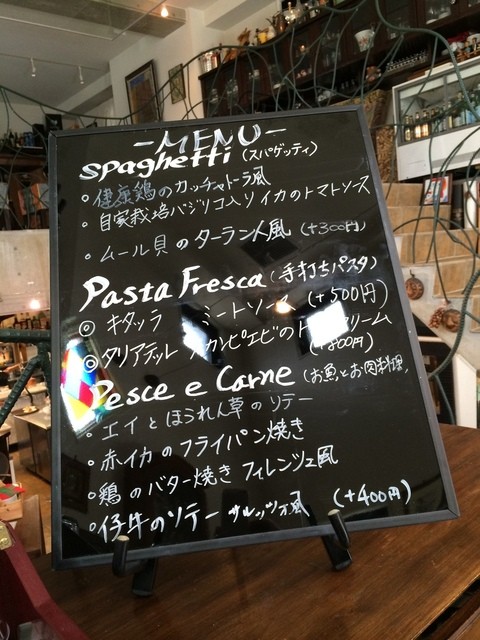 -MENU-
spaghetti (スパゲッティ)
・健康鶏のカッチャトーラ風
・自家栽培バジリコ入りイカのトマトソース
・ムール貝のターラント風 (+300円)
Pasta Fresca (手打ちパスタ)
◎ キタッラ ミートソース (+500円)
◎ タリアテッレ スカンピエビのトマトクリーム
(+800円)
Pesce e Carne (お魚とお肉料理)
・エイとほうれん草のソテー
・赤イカのフライパン焼き
・鶏のバター焼き フィレンツェ風
・仔牛のソテー 風 (+400円)